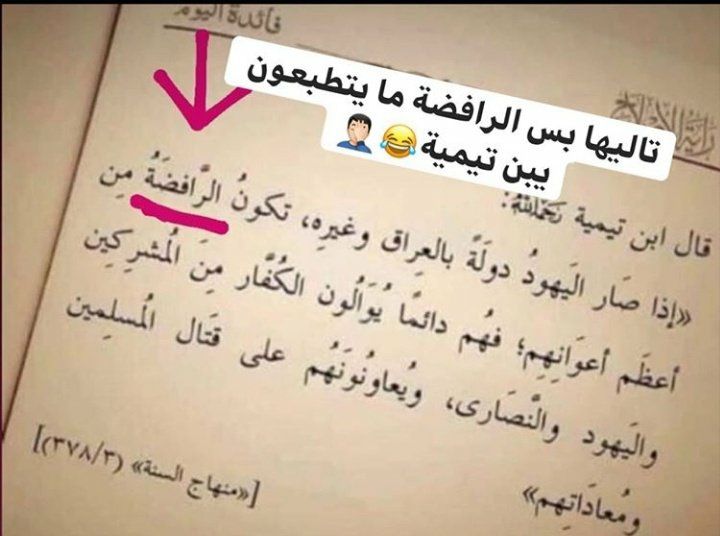 فائدة اليوم
تاليها بس الرافضة ما يتطبعون
يبن تيمية😂🤦🏻‍♂️
قال ابن تيمية رَحِمَهُ اللَّهُ:
«إذا صَار اليَهودُ دولَةً بالعِراق وغيرِه، تكونُ الرَّافضَةُ مِن
أعظَم أعوَانِهِم؛ فهُم دائمًا يُوَالُون الكُفَّار مِنَ المُشرِكِين
واليَهود والنَّصَارى، ويُعاونُونَهُم على قتَال المُسلِمين
ومُعادَاتِهِم»
[«منهاج السنة» (٣/ ٣٧٨)]